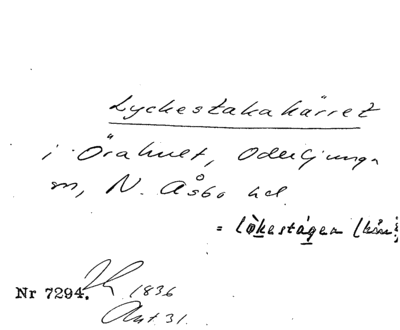 Lyckestakakärret
i Örahult, Oderljunga
sn, N. Åsbo hd
= lökestagen
Nr 7294. 1836
Ant. 31.